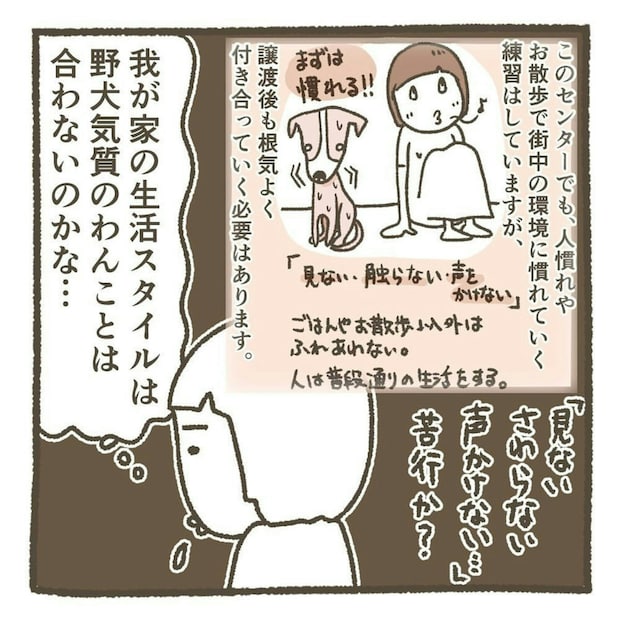 このセンターでも、人慣れや
お散歩で街中の環境に慣れていく
練習はしていますが、
譲渡後も根気よく
付き合っていく必要はあります。
まずは
慣れる!!
「見ない・触らない・声を
かけない」
ごはんやお散歩以外は
ふれあわない。
人は普段通りの生活をする。
「見ない
さわらない
声かけない…」
苦行か?
我が家の生活スタイルは
野犬気質のわんことは
合わないのかな…